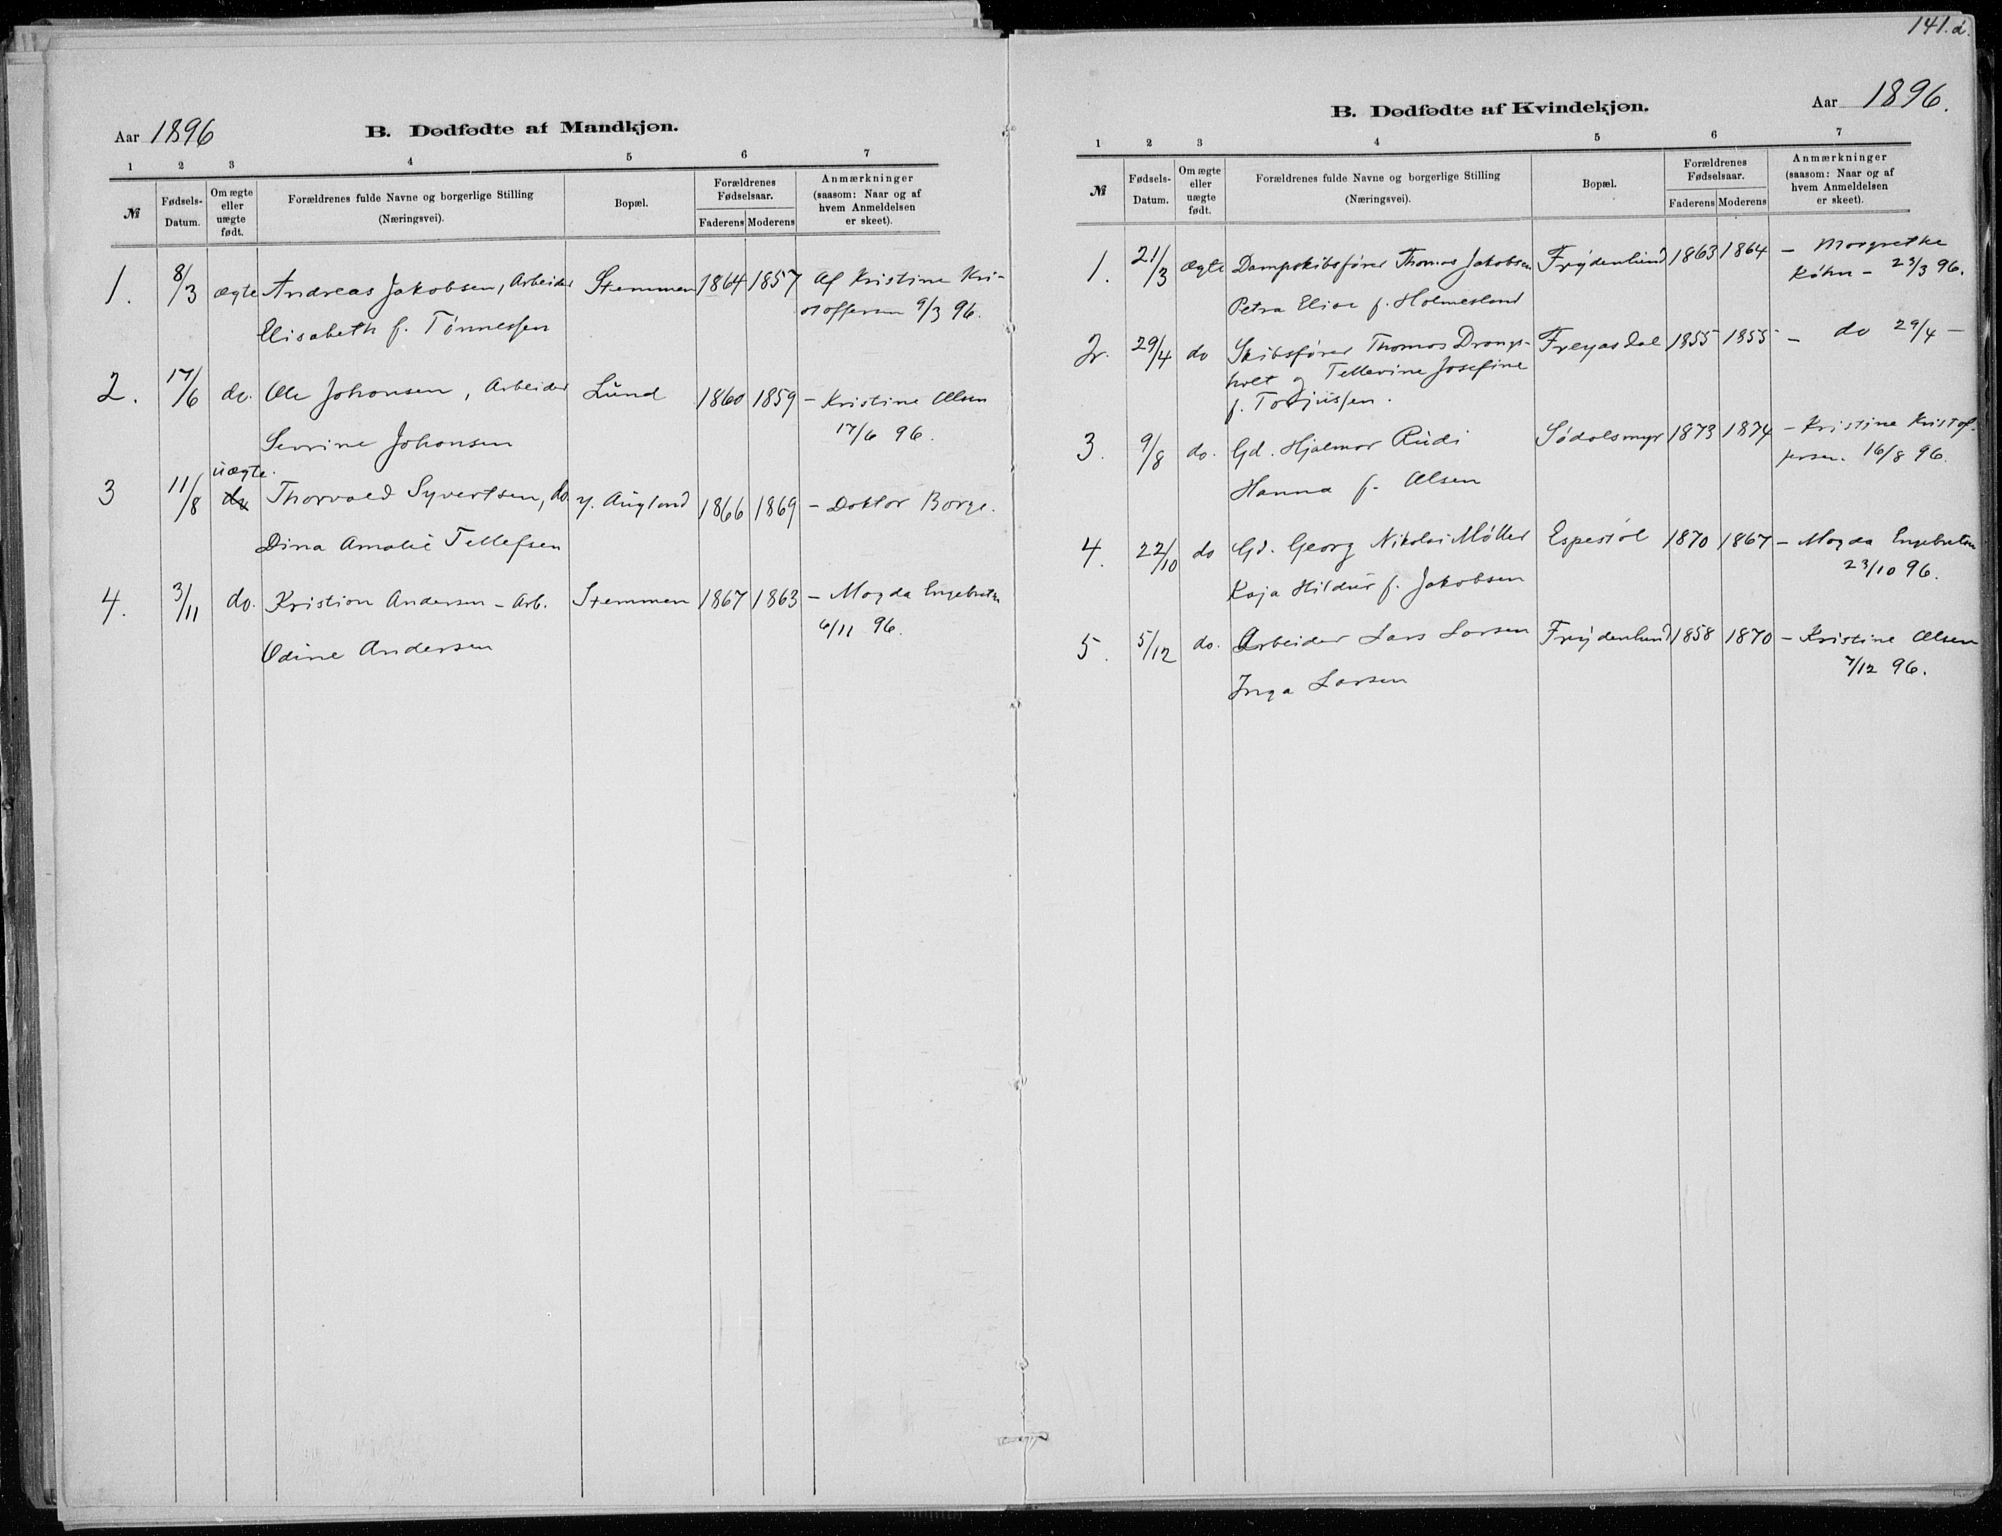 141.d.
Aar 1896
B. Dødfødte af Mandkjøn.
1 2 3 4 5 6 7
№
Fødsels-Datum.
Om ægte eller uægte født.
Forældrenes fulde Navne og borgerlige Stilling
(Næringsvei).
Bopæl.
Forældrenes Fødselsaar.
Faderens Moderens
Anmærkninger
(saasom: Naar og af
hvem Anmeldelsen
er skeet).
1. 8/3 ægte Andreas Jakobsen, Arbeider Stemmen 1864 1857 Af Kristine Kri-
Elisabeth f. Tönnessen stoffersen 9/3 96.
2. 17/6 do. Ole Johansen, Arbeider Lund 1860 1859 – Kristine Olsen
Sevrine Johansen 17/6 96.
uægte.
3 11/8 do Thorvald Syvertsen, do. y. Augland 1866 1869 – Doktor Borge.
Dina Amalie Tellefsen
4. 3/11 do. Kristian Andersen – Arb. Stemmen 1867 1863 – Magda Engebretsen
Odine Andersen 6/11 96.
B. Dødfødte af Kvindekjøn.
Aar 1896.
1 2 3 4 5 6 7
№
Fødsels-Datum.
Om ægte eller uægte født.
Forældrenes fulde Navne og borgerlige Stilling
(Næringsvei).
Bopæl.
Forældrenes Fødselsaar.
Faderens Moderens
Anmærkninger
(saasom: Naar og af
hvem Anmeldelsen
er skeet).
1. 21/3 ægte Dampskibsfører Thomas Jakobsen Frydenlund 1863 1864 – Margrethe
Petra Elise f. Holmesland Køhn – 23/3 96.
2. 29/4 do Skibsfører Thomas Drangs- Freyasdal 1855 1855 – do 29/4 –
holt og Tellevine Josefine
f. Torjussen.
3. 9/8 do. Gd. Hjalmar Rudi Sødalsmyr 1873 1874 – Kristine Kristof-
Hanna f. Olsen fersen. 16/8 96.
4. 22/10 do Gd. Georg Nikolai Møller Espestøl 1870 1867 – Magda Engebretsen
Kaja Hildur f. Jakobsen 23/10 96.
5. 5/12 do. Arbeider Lars Larsen Frydenlund 1858 1870 – Kristine Olsen
Inga Larsen 7/12 96.